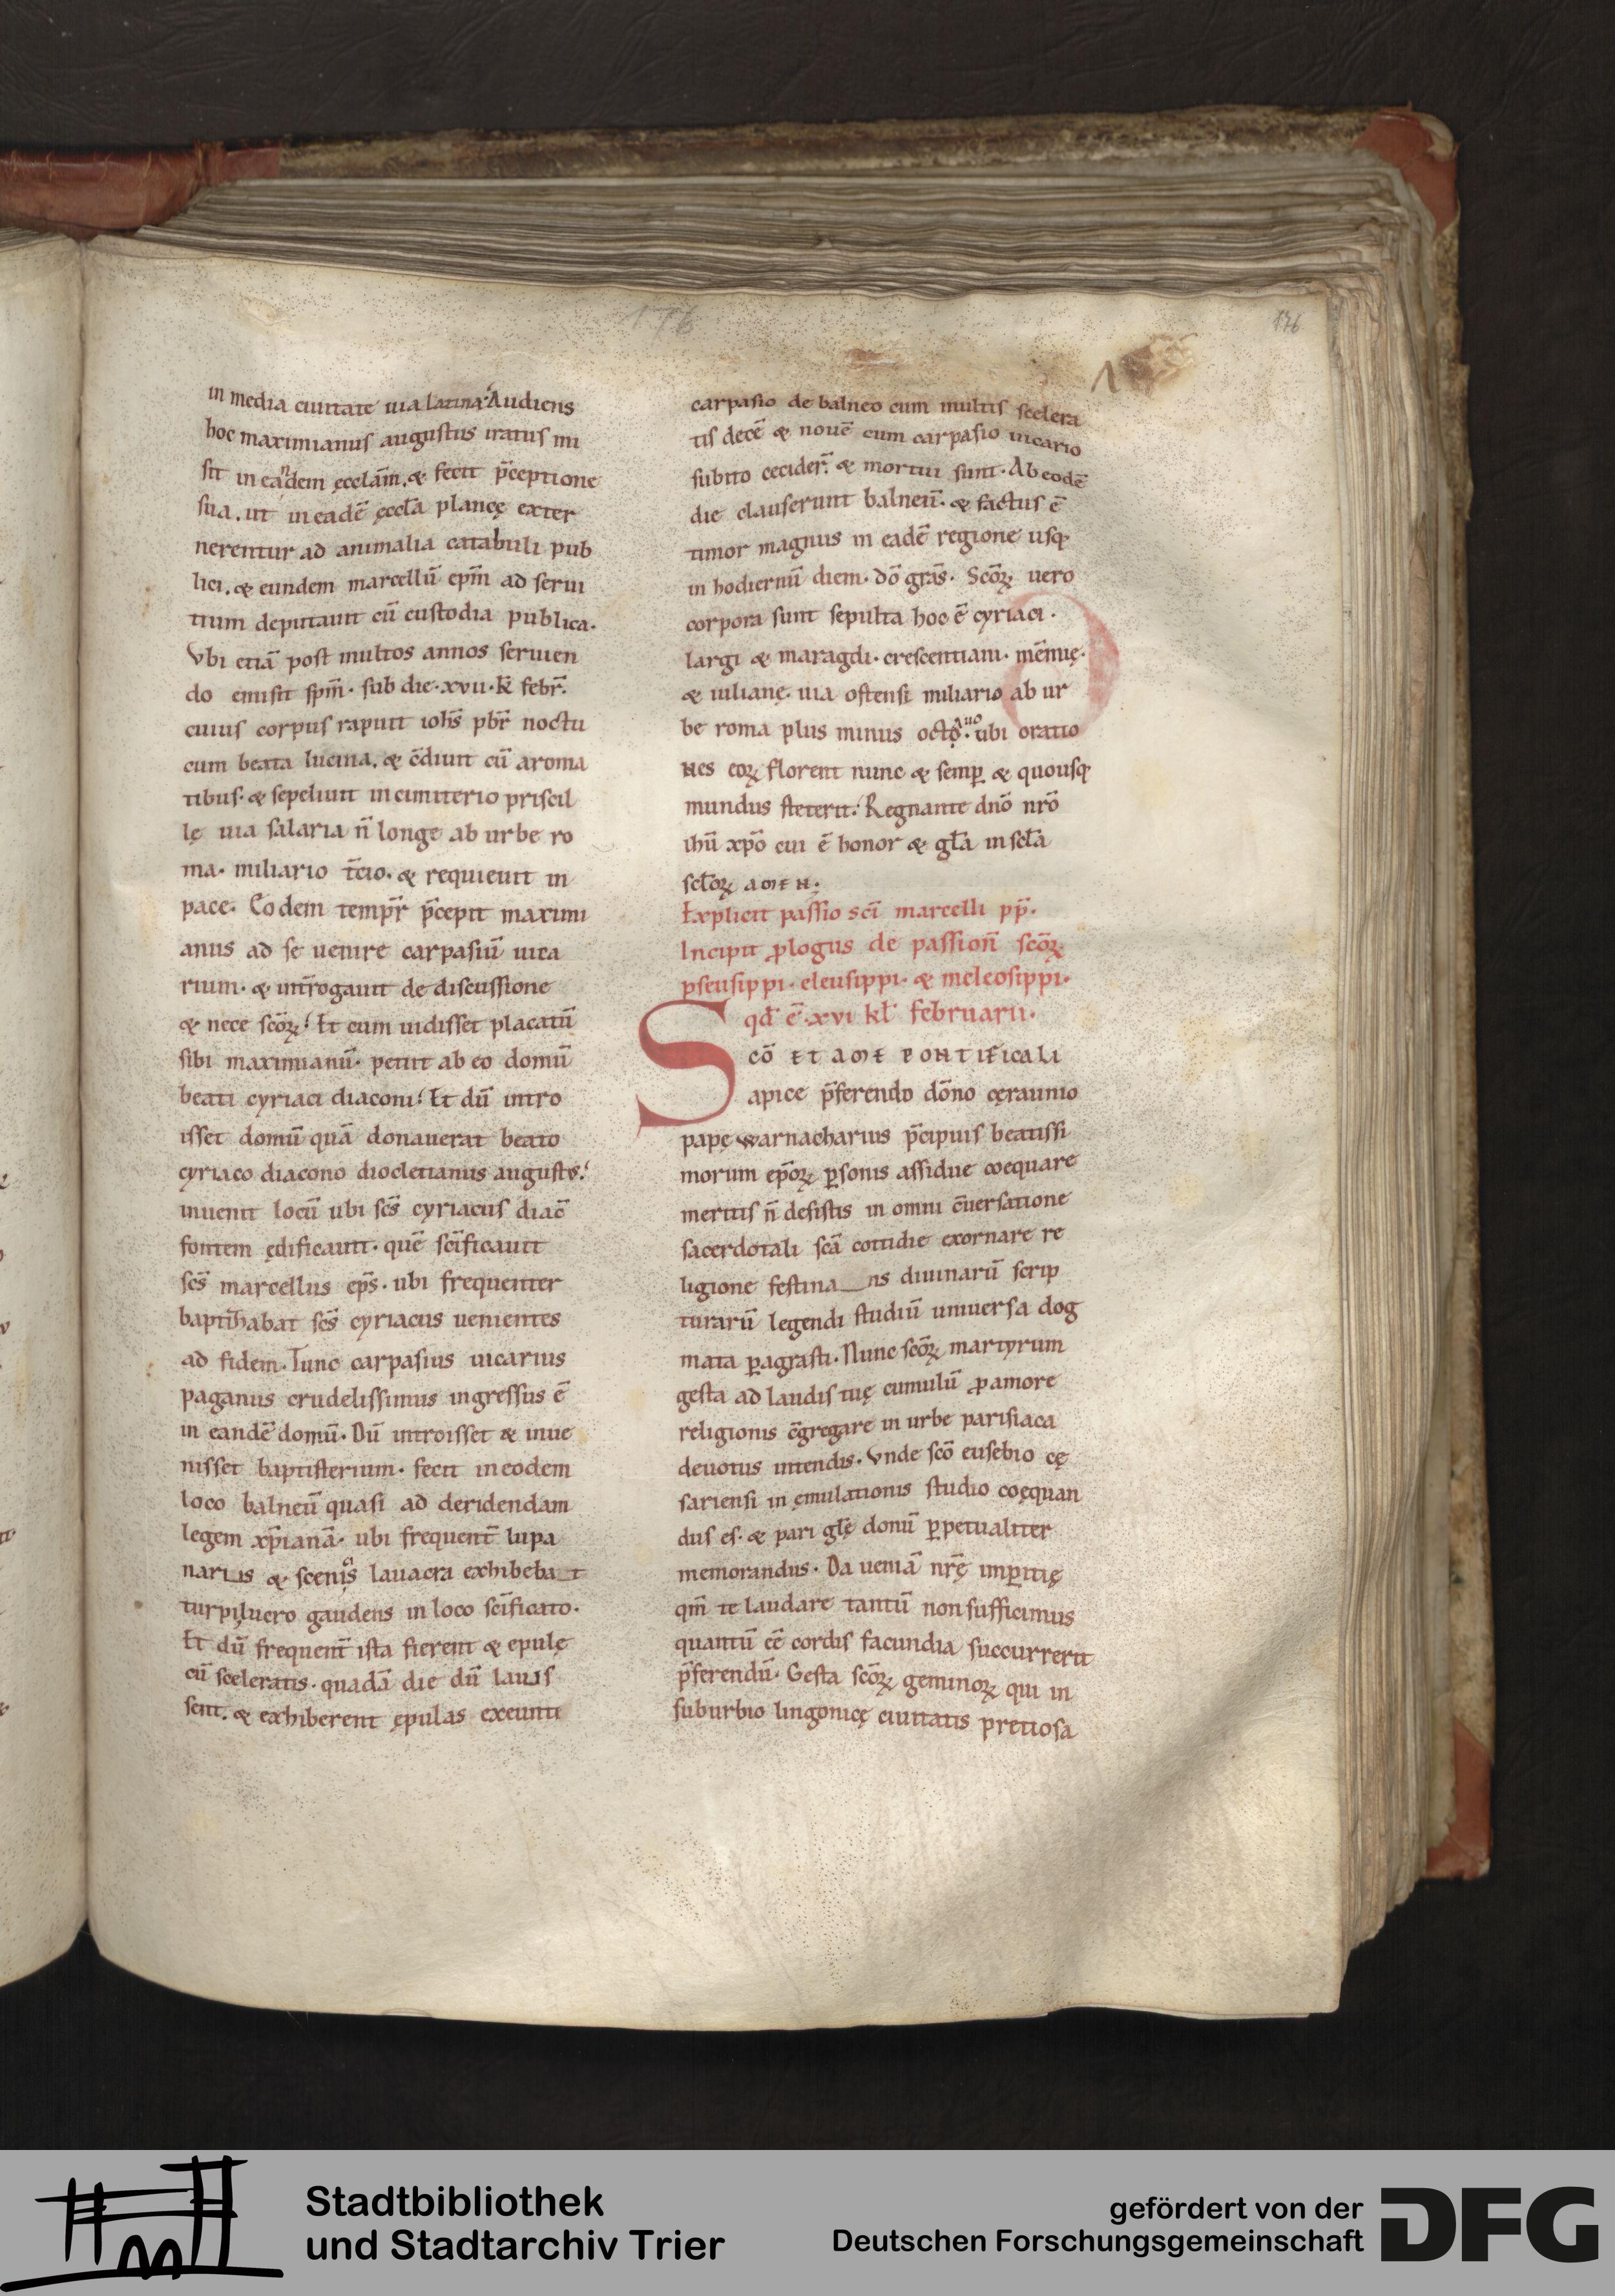 176
176
in media ciuitate uia latina. Audiens
hoc maximianus augustus iratus mi
sit in eandem ęcclam̄. & fecit p̄ceptione
sua. ut in eadē ęccl̄a plancę exter
nerentur ad animalia catabuli pub
lici. & eundem marcellū ep̄m ad serui
tium deputauit cū custodia publica.
Vbi etiā post multos annos seruien
do emisit sp̄m. sub die. xvii. kl̄ febr̄.
cuius corpus rapuit ioh̄s pb̄r noctu
cum beata lucina. & c̄diuit cū aroma
tibus. & sepeliuit in cimiterio priscil
lę uia salaria n̄ longe ab urbe ro
ma. miliario t̄cio. & requieuit in
pace. Eodem temp̄r p̄cepit maximi
anus ad se uenire carpasiū uica
rium. & int̄rogauit de discussione
& nece scōꝝ. Et cum uidisset placatū
sibi maximianū. petiit ab eo domū
beati cyriaci diaconi. Et dū intro
isset domū quā donauerat beato
cyriaco diacono diocletianus augustus.
inuenit locū ubi sc̄s cyriacus diac̄
fontem ędificauit. quē sc̄ificauit
sc̄s marcellus ep̄s. ubi frequenter
baptizabat sc̄s cyriacus uenientes
ad fidem. Tunc carpasius uicarius
paganus crudelissimus ingressus ē
in eandē domū. Dū introisset & inue
nisset baptisterium. fecit in eodem
loco balneū quasi ad deridendam
legem xp̄ianā. ubi frequent̄ lupa
nariis & scenis lauacra exhibebat
turpiluero gaudens in loco sc̄ificato.
Et dū frequent̄ ista fierent & epulę
cū sceleratis. quadā die dū lauis
sent. & exhiberent ępulas exeunti
carpasio de balneo cum multis scelera
tis decē & nouē cum carpasio uicario
subito cecider̄. & mortui sunt. Ab eodē
die clauserunt balneū. & factus ē
timor magnus in eadē regione usq;
in hodiernū diem. dō grās. Scōꝝ uero
corpora sunt sepulta hoc ē cyriaci.
largi & maragdi. crescentiani. mēmię.
& iulianę. uia ostensi miliario ab ur
be roma plus minus octauo. ubi oratio
nes eoꝝ florent nunc & semp̄ & quousq;
mundus steterit. Regnante dnō nrō
ihū xp̄o cui ē honor & gl̄a in scl̄a
scl̄oꝝ amen.
Explicit passio sc̄i marcelli pp̄.
Incipit ꝓlogus de passion̄ scōꝝ
pseusippi. eleusippi. & meleosippi.
qd̄ ē. xvi kl̄ februarii.
Scō et ame pontificali
apice p̄ferendo dōno cęraunio
papę warnacharius p̄cipuis beatissi
morum ep̄oꝝ ꝑsonis assidue coequare
meritis n̄ desistis in omni c̄uersatione
sacerdotali scā cottidie exornare re
ligione festinans diuinarū scrip
turarū legendi studiū uniuersa dog
mata ꝑagrasti. Nunc scōꝝ martyrum
gesta ad laudis tuę cumulū ꝓ amore
religionis c̄gregare in urbe parisiaca
deuotus intendis. Vnde scō eusebio cę
sariensi in ęmulationis studio coęquan
dus es. & pari gl̄ę donū ꝑpetualiter
memorandus. Da ueniā nr̄ę imꝑitię
qm̄ te laudare tantū non sufficimus
quantū eē cordis facundia succurrerit
p̄ferendū. Gesta scōꝝ geminoꝝ qui in
suburbio lingonicę ciuitatis pretiosa
Stadtbibliothek
und Stadtarchiv Trier
gefördert von der
Deutschen Forschungsgemeinschaft
DFG